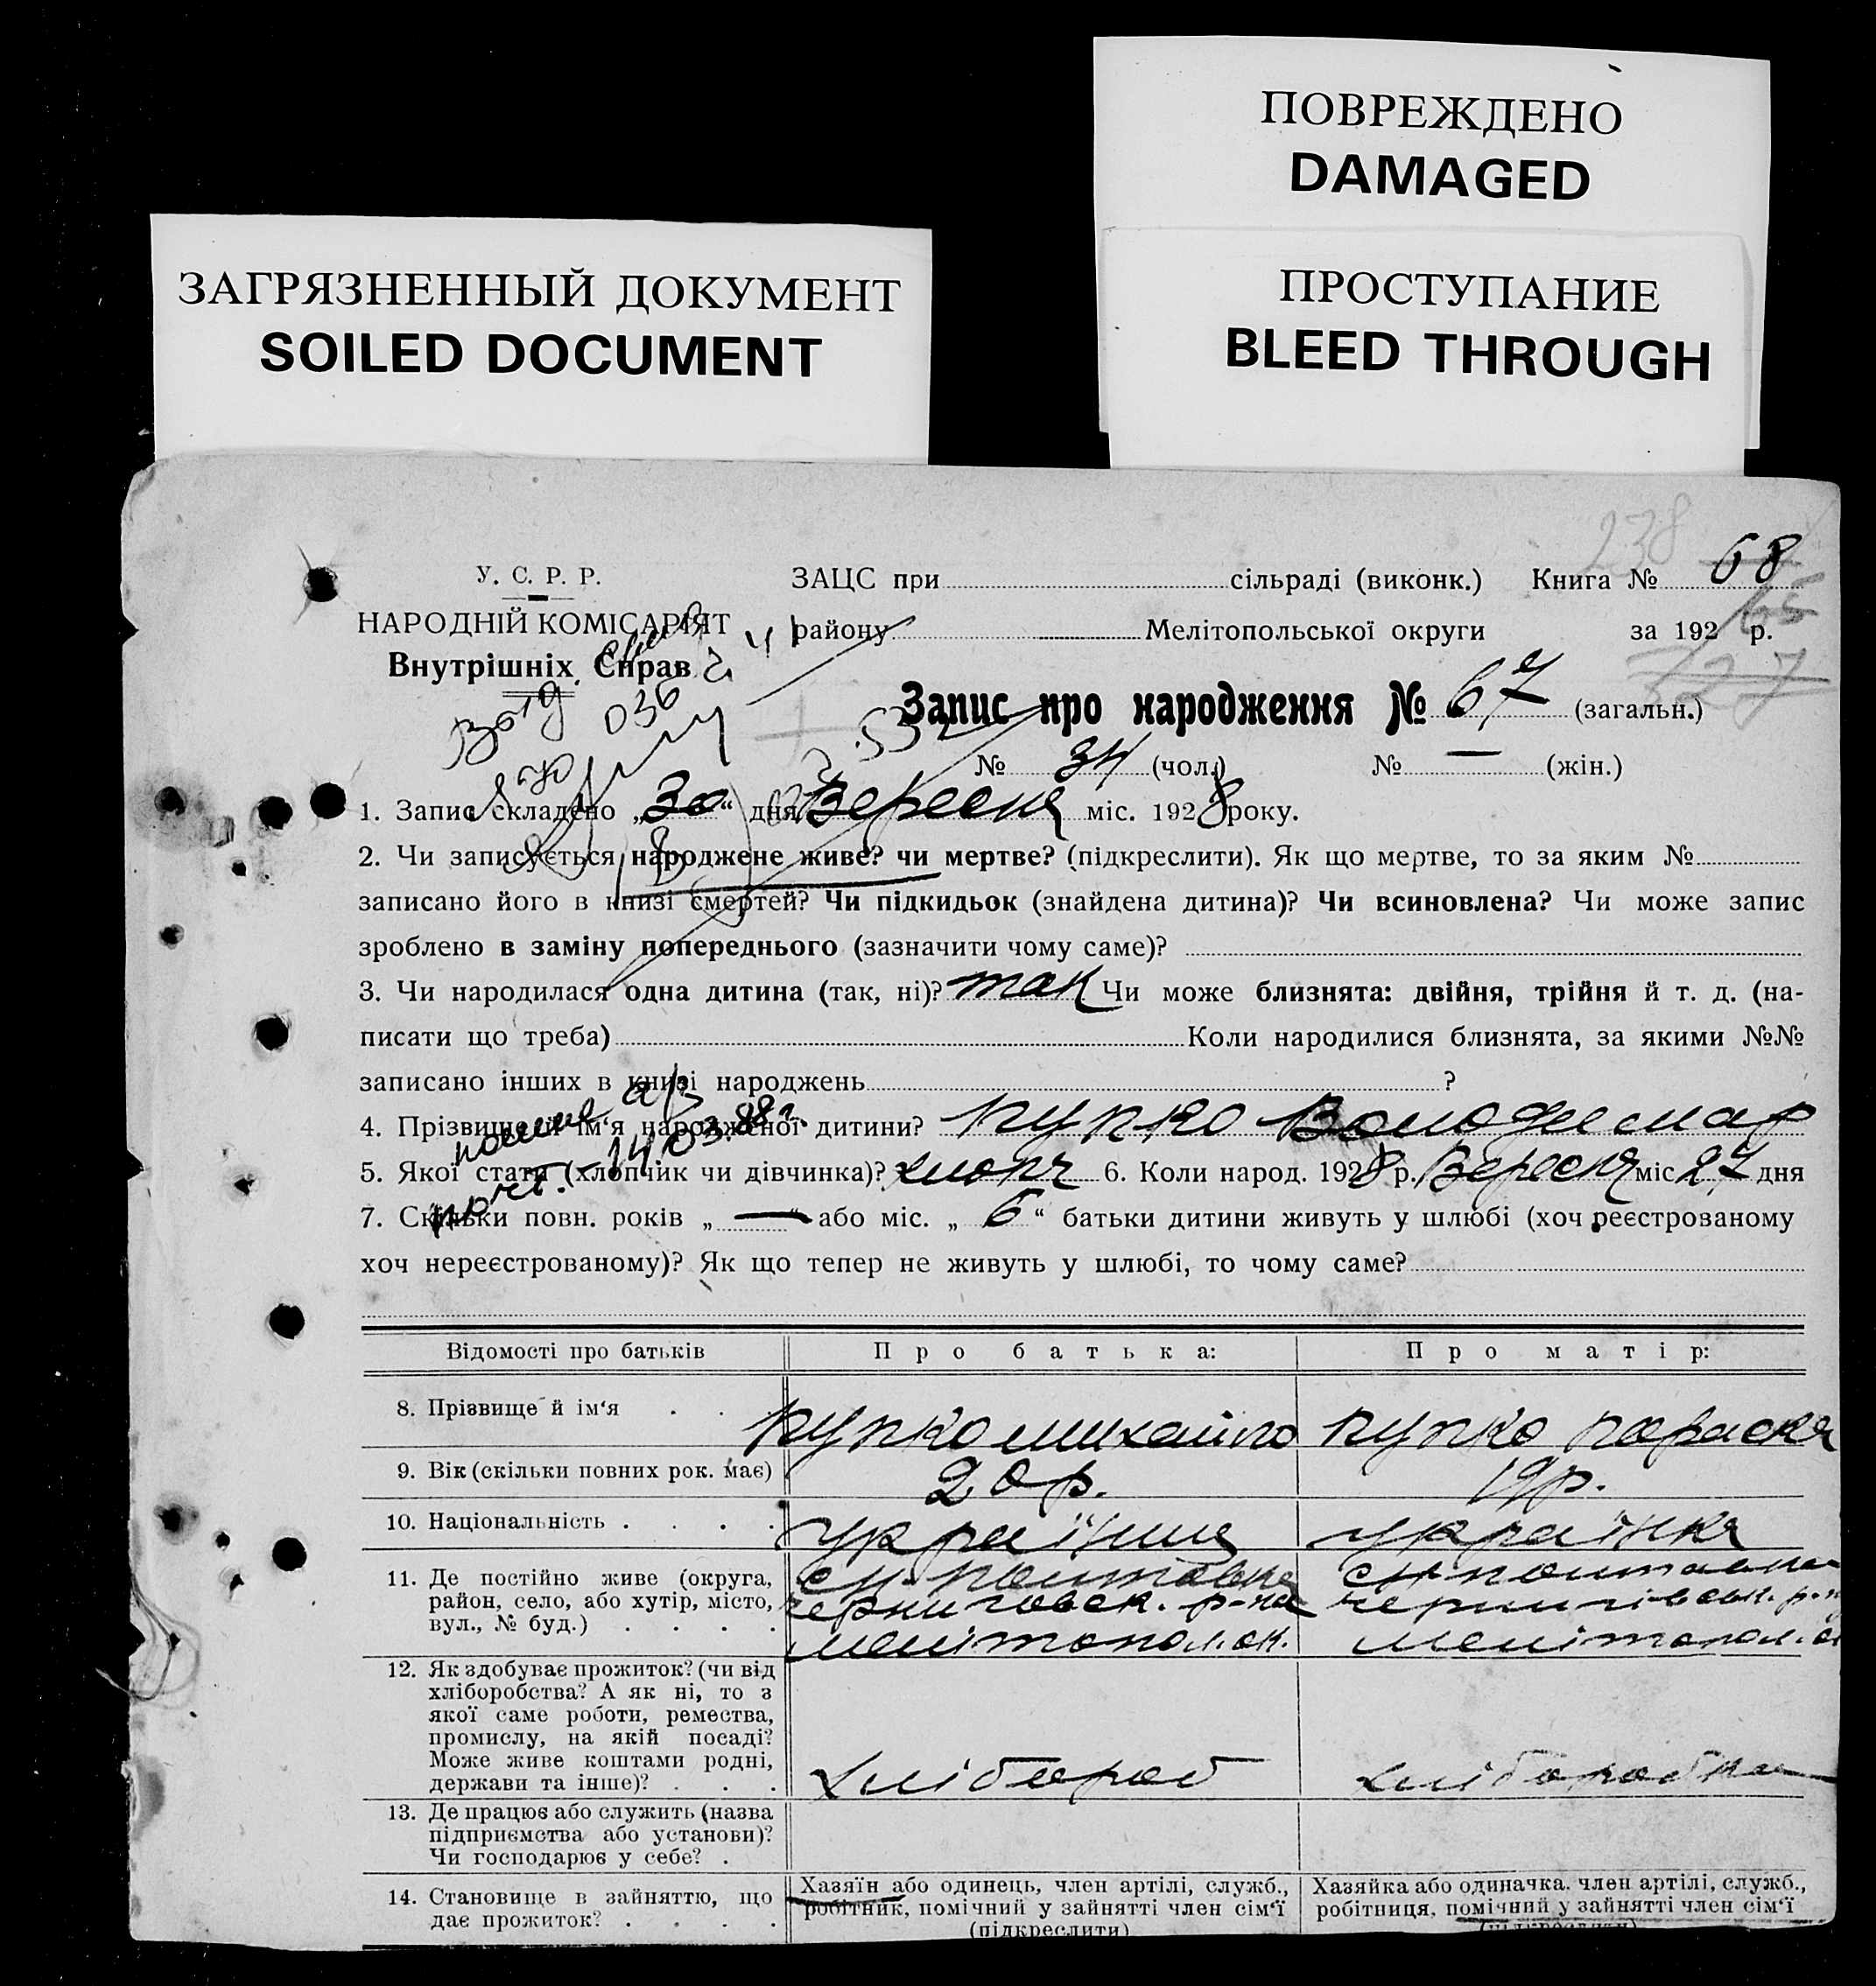 ПОВРЕЖДЕНО
DAMAGED
ЗАГРЯЗНЕННЫЙ ДОКУМЕНТ
SOILED DOCUMENT
ПРОСТУПАНИЕ
BLEED THROUGH
238
У. С. Р. Р.
НАРОДНІЙ КОМІСАРІЯТ
Внутрішніх Справ
ЗАЦС при сільраді (виконк.) Книга № 68
району Мелітопольської округи за 192 р.
327
Запис про народження № 67 (загальн.)
№ 34 (чол.) № — (жін.)
1. Запис складено „30“ дня Вересня міс. 1928 року.
2. Чи записується народжене живе? чи мертве? (підкреслити). Як що мертве, то за яким №
записано його в книзі смертей? Чи підкидьок (знайдена дитина)? Чи всиновлена? Чи може запис
зроблено в заміну попереднього (зазначити чому саме)?
3. Чи народилася одна дитина (так, ні)? так Чи може близнята: двійня, трійня й т. д. (на-
писати що треба) Коли народилися близнята, за якими №№
записано інших в книзі народжень ?
4. Прізвище й ім‘я народженої дитини? Купко Володимар
14.03.88г.
5. Якої стати (хлопчик чи дівчинка)? хлопч 6. Коли народ. 1928 р. Вересня міс 27 дня
7. Скільки повн. років „—“ або міс. „6“ батьки дитини живуть у шлюбі (хоч реєстрованому
хоч нереєстрованому)? Як що тепер не живуть у шлюбі, то чому саме?
Відомості про батьків
Про батька:
Про матір:
8. Прізвище й ім‘я . . .
Купко михайло
Купко параска
9. Вік (скільки повних рок. має)
20 р.
19 р.
10. Національність . . . .
українця
українка
11. Де постійно живе (округа,
район, село, або хутір, місто,
вул., № буд.) . . . .
полтавка
черниговск. р-на
мелітопол. ок.
полтавка
чернигівськ. р-н
мелітопол. ок
12. Як здобуває прожиток? (чи від
хліборобства? А як ні, то з
якої саме роботи, ремества,
промислу, на якій посаді?
Може живе коштами родні,
держави та інше)? . . .
хлібороб
хліборобка
13. Де працює або служить (назва
підприємства або установи)?
Чи господарює у себе? .
14. Становище в зайняттю, що
дає прожиток? . . . .
Хазяїн або одинець, член артілі, служб.,
робітник, помічний у зайнятті член сім‘ї
(підкреслити)
Хазяйка або одиначка. член артілі, служб.,
робітниця, помічний у зайнятті член сім‘ї
(підкреслити)